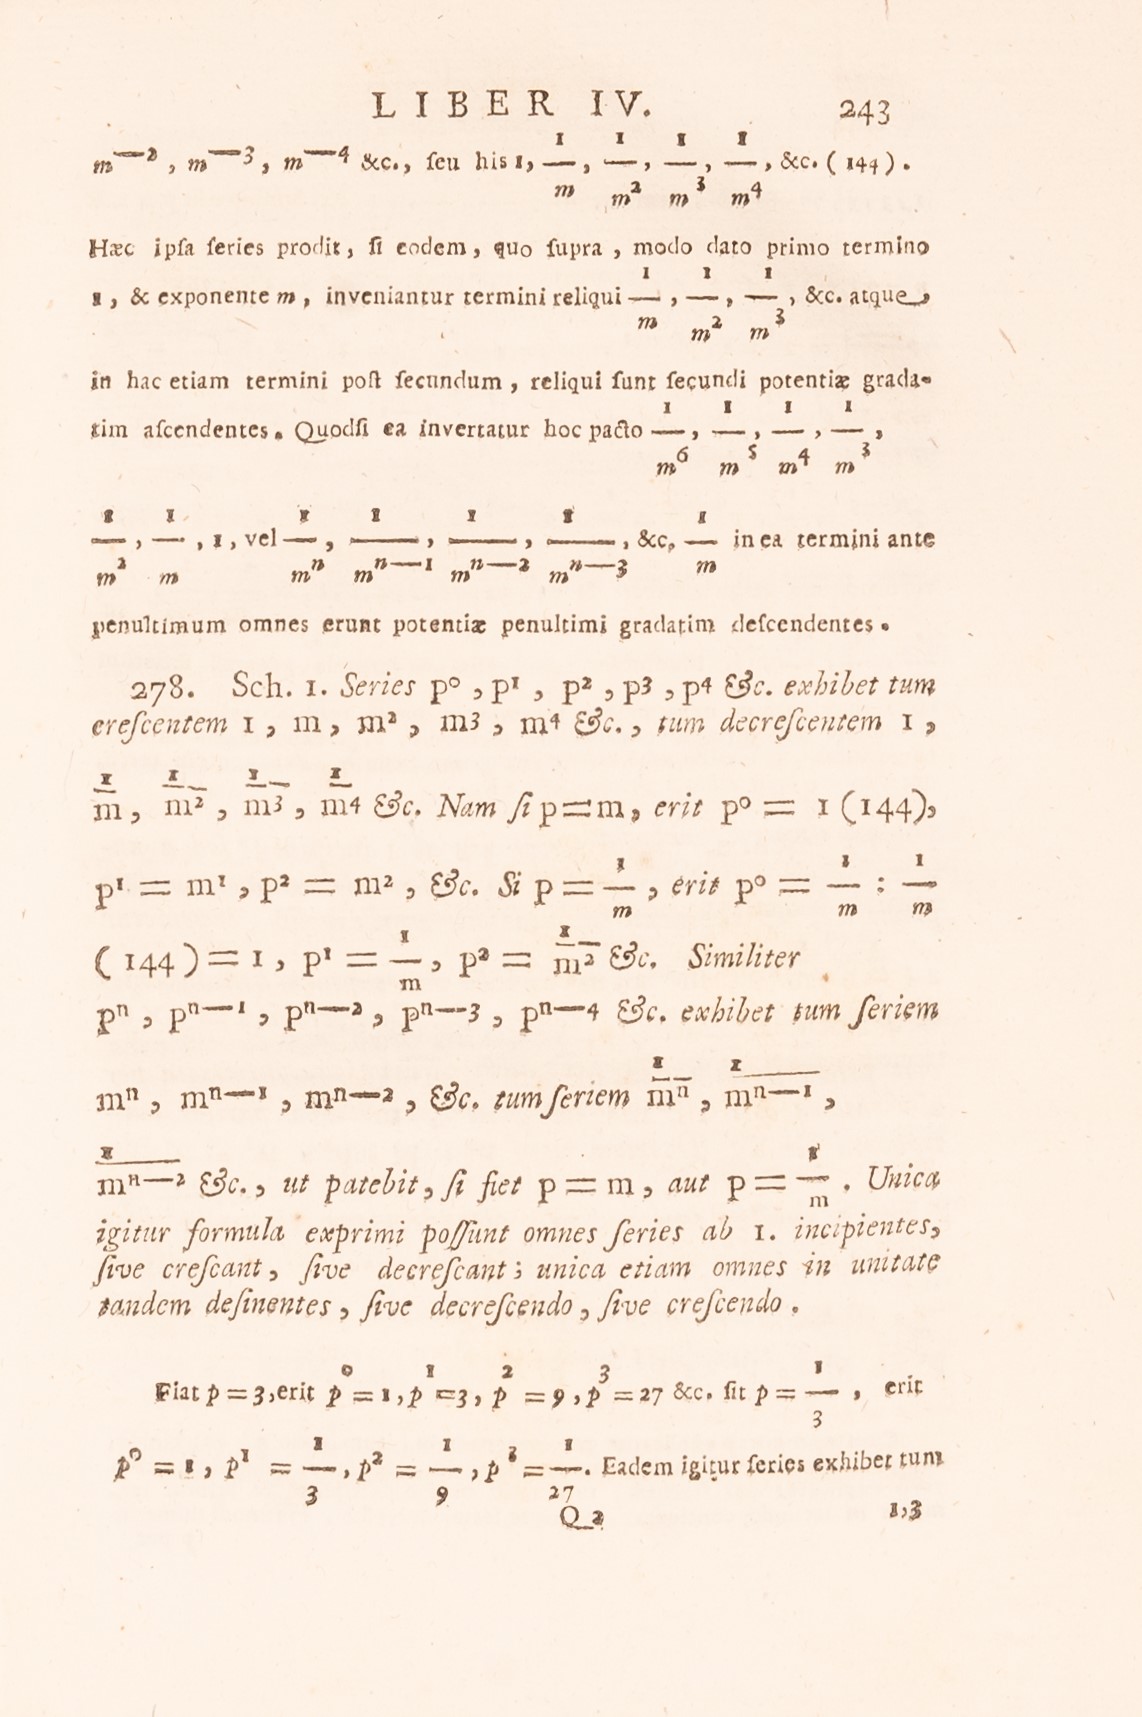 LIBER IV. 243
m⁻², m⁻³, m⁻⁴ &c., ſeu his 1, 1/m, 1/m², 1/m³, 1/m⁴, &c. (144).
Hæc ipſa ſeries prodit, ſi eodem, quo ſupra, modo dato primo termino
1, & exponente m, inveniantur termini reliqui 1/m, 1/m², 1/m³, &c. atque,
in hac etiam termini poſt ſecundum, reliqui ſunt ſecundi potentiæ grada-
tim aſcendentes. Quodſi ea invertatur hoc pacto 1/m⁶, 1/m⁵, 1/m⁴, 1/m³,
1/m², 1/m, 1, vel 1/mⁿ, 1/mⁿ⁻¹, 1/mⁿ⁻², 1/mⁿ⁻³, &c, 1/m in ea termini ante
penultimum omnes erunt potentiæ penultimi gradatim deſcendentes.
278. Sch. 1. Series p⁰, p¹, p², p³, p⁴ &c. exhibet tum
creſcentem 1, m, m², m³, m⁴ &c., tum decreſcentem 1,
1/m, 1/m², 1/m³, 1/m⁴ &c. Nam ſi p=m, erit p⁰ = 1 (144),
p¹ = m¹, p² = m², &c. Si p = 1/m, erit p⁰ = 1/m : 1/m
(144) = 1, p¹ = 1/m, p² = 1/m² &c. Similiter
pⁿ, pⁿ⁻¹, pⁿ⁻², pⁿ⁻³, pⁿ⁻⁴ &c. exhibet tum ſeriem
mⁿ, mⁿ⁻¹, mⁿ⁻², &c. tum ſeriem 1/mⁿ, 1/mⁿ⁻¹,
1/mⁿ⁻² &c., ut patebit, ſi fiet p = m, aut p = 1/m. Unica
igitur formula exprimi poſſunt omnes ſeries ab 1. incipientes,
ſive creſcant, ſive decreſcant; unica etiam omnes in unitate
tandem deſinentes, ſive decreſcendo, ſive creſcendo.
Fiat p = 3, erit p⁰ = 1, p¹ = 3, p² = 9, p³ = 27 &c. ſit p = 1/3, erit
p⁰ = 1, p¹ = 1/3, p² = 1/9, p³ = 1/27. Eadem igitur ſeries exhibet tum
Q 2 1,3